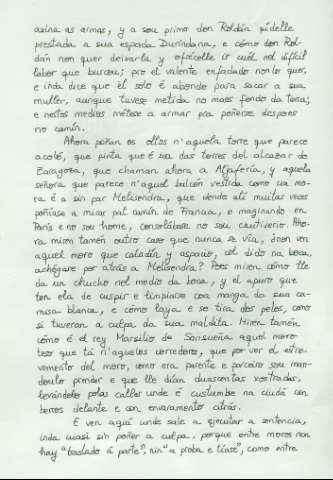 axina as armas, y a sou primo don Roldán pídelle
prestada a sua espada Durindana, e cómo don Rol-
dán non quer deixarla y ofrécelle ir cuél nel difícil
labor que buscou; pro el valente enfadado nonlo quer,
e inda dice que él solo é abondo para sacar a sua
muller, aunque tuvese metida no mais fondo da terra;
e nestos medios métese a armar pra poñerse despois
no camín.
Ahora poñan os ollos n'aquela torre que parece
acolá, que pinta que é úa das torres del alcazar de
Zaragoza, que chaman ahora a Aljafería, y aquela
señora que parece n'aquel balcón vestida como úa mo-
ra é a sin par Melisendra, que dende alí muitas veces
poñíase a mirar pal camín de Francia, e maginando en
París e no sou home, consolábase no sou cautiverio. Aho-
ra miren tamén outro caso que nunca se víu, ¿non ven
aquel moro que caladín y aspacio, col dido na boca,
achégase por atrás a Melisendra? Pois miren cómo lle
da un chucho nel medio da boca, y el apuro que
ten ela de cuspir e limpiarse coa manga da sua ca-
misa blanca, e cómo laya e se tira dos pelos, como
si tuveran a culpa da sua maldita. Miren tamén
cómo é el rey Marsilio de Sansueña aquel moro
teso que tá n'aquelos corredores, que por ver el atre-
vemento del moro, como era pariente e parceiro sou man-
doulo prender e que lle dían duascentas vostradas,
levándolo polas calles unde é custumbe na ciudá con
berros delante e con envaramento atrás.
E ven aquí unde sale a ejecutar a sentencia,
inda cuasi sin poñer a culpa, porque entre moros non
hay "traslado á parte", nin "a proba e tíase", como entre